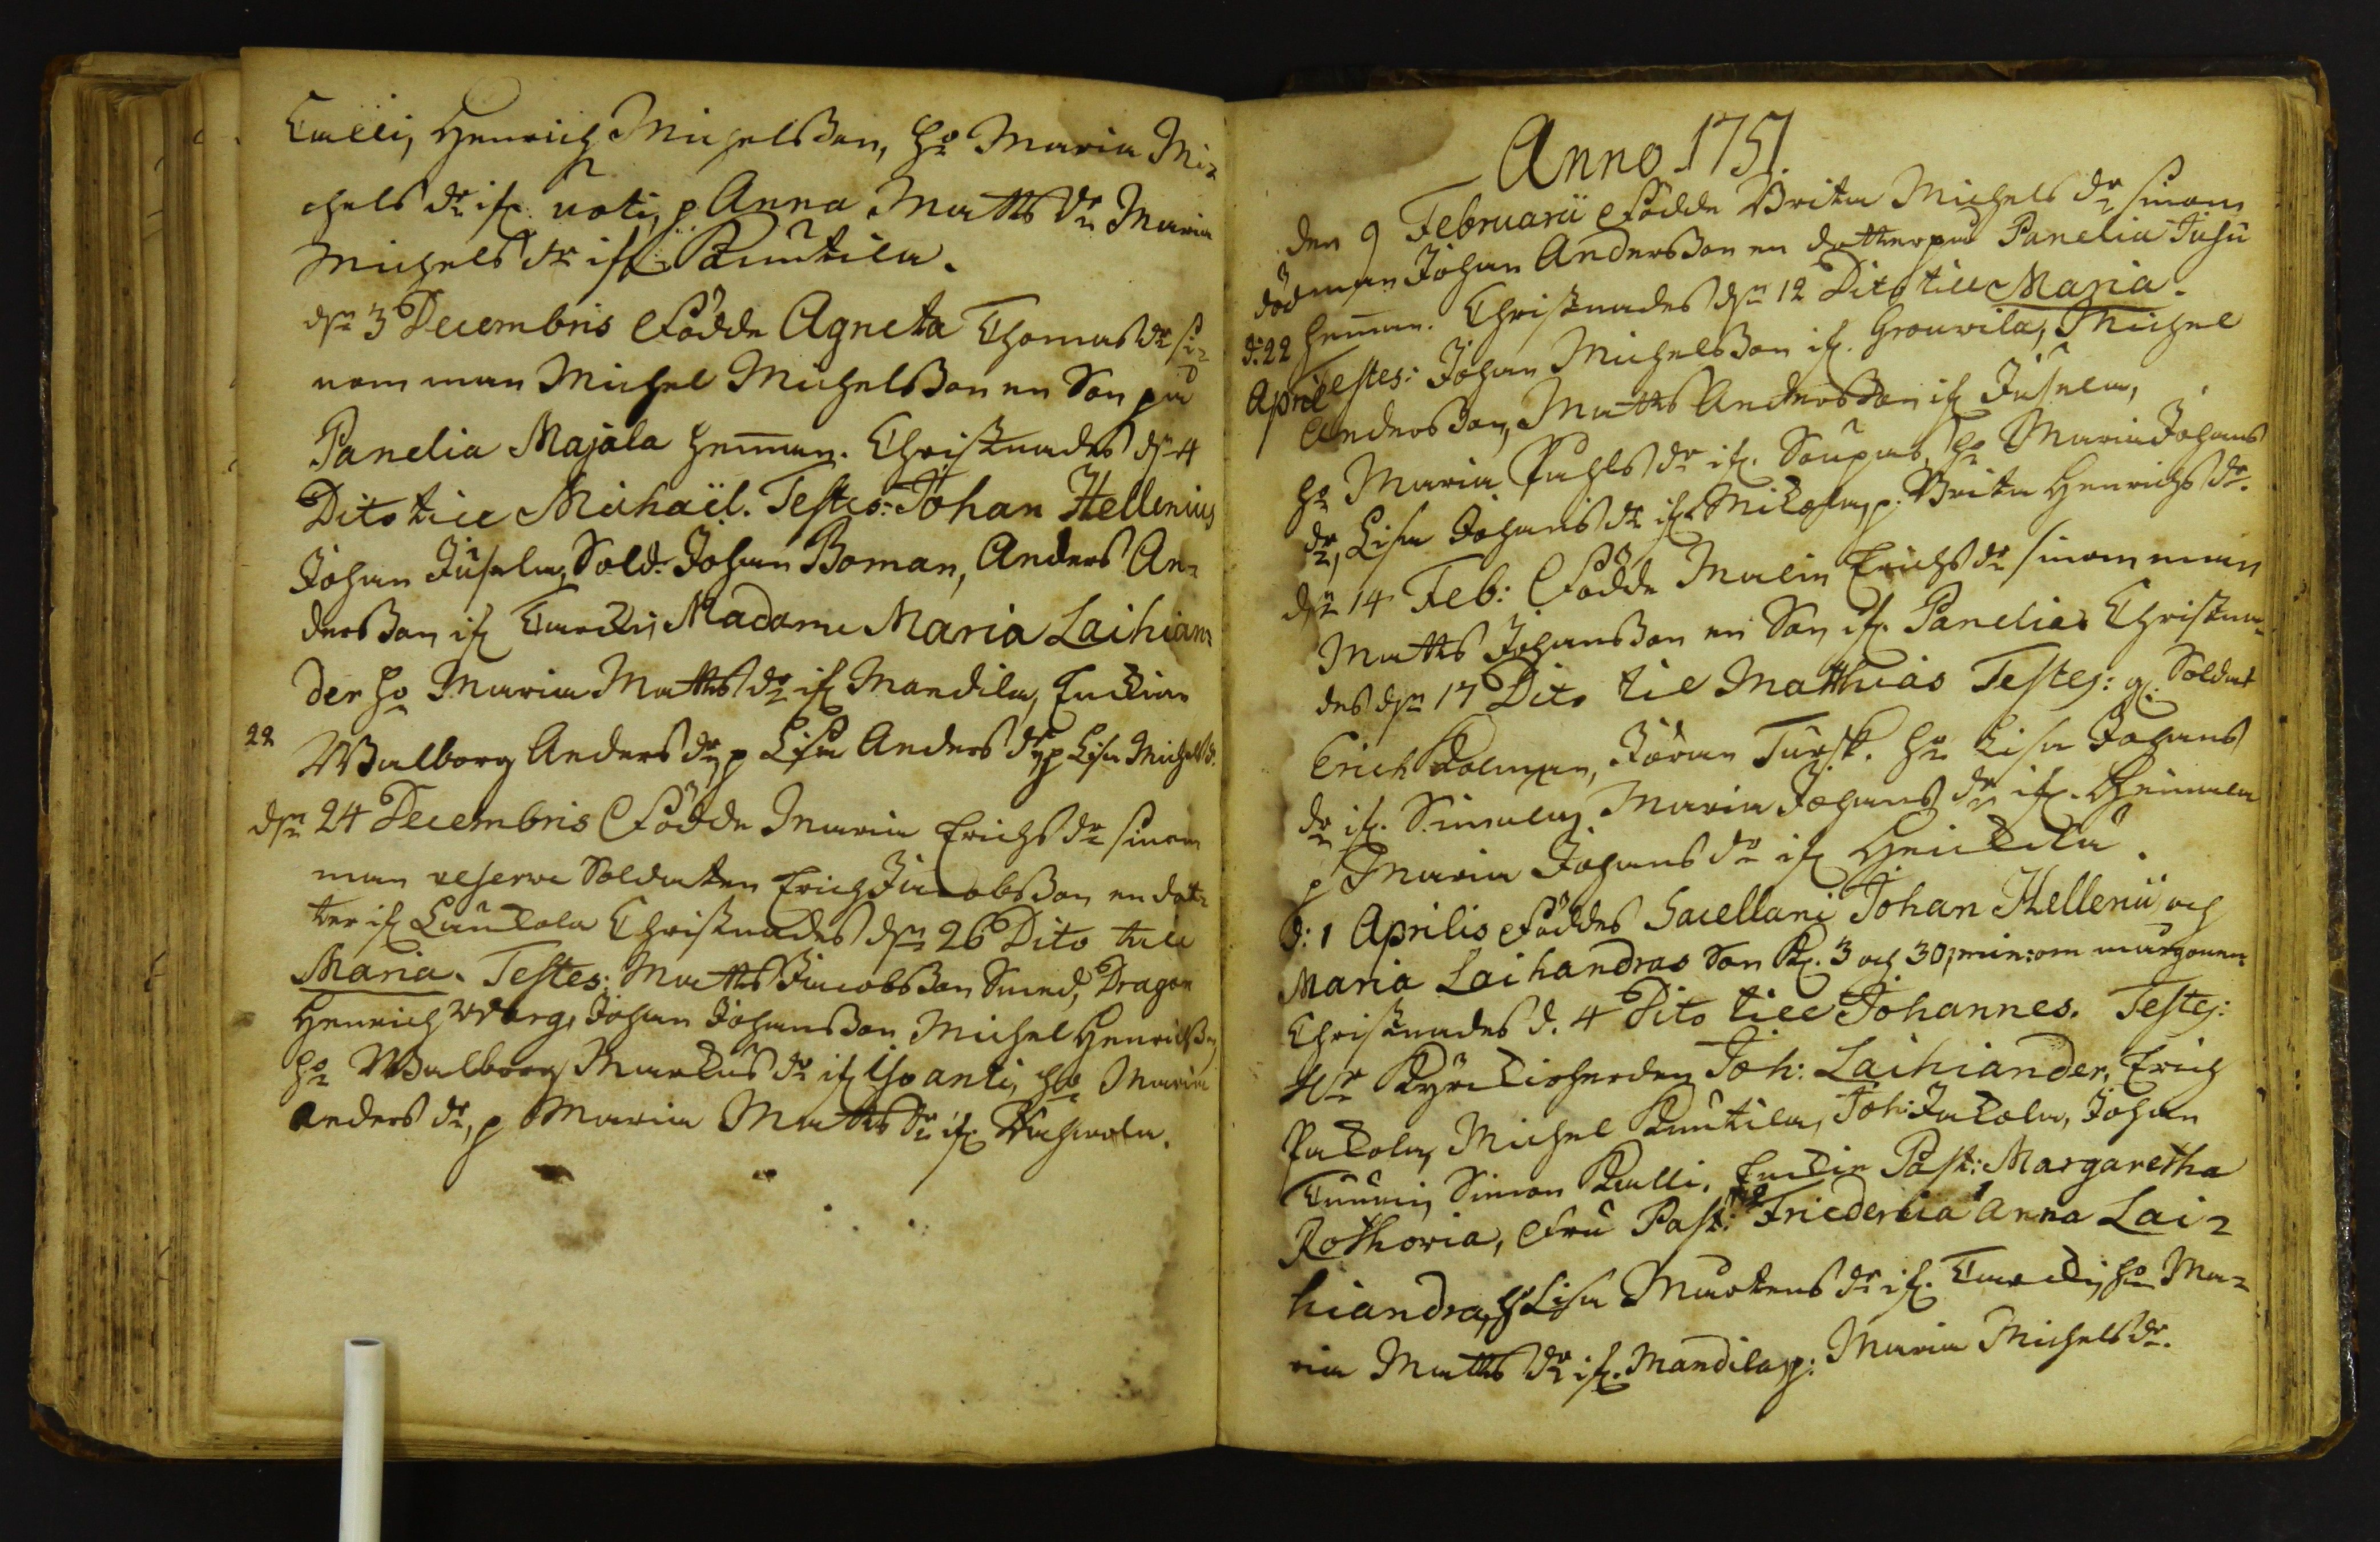 Culli, Henrich Michelsson, ho Maria Mi-
chels dr if: uoti, p Anna Matts dr Maria
Michels dr if Kuutila.
dn 3 Decembris födde Agneta Thomas dr si-
nom man Michel Michelsson en Son på
Panelia Majala hemman. Christnades dn 4
Dito till Michaël. Testes: Johan Hellenius
Johan Jusela, Sold: Johan Boman, Anders An-
dersson if Turcki, Madame Maria Laihian-
der ho Maria Matts dr if Mandila, Enckian
22 Walborg Anders dr p Lisa Anders dr p Lisa Michels d.
dn 24 Decembris födde Maria Erichs dr sinom
man reserve Soldaten Erich Jacobsson en dot-
ter if Laukola Christnades dn 26 Dito till
Maria. Testes: Matts Jacobsson Smed, Dragon
Henrich Warg, Johan Johansson Michel Henrichsson
ho Walborg Markus dr if Isoanti, ho Maria
Anders dr, p Maria Matts dr if
Anno 1751.
den 9 Februarii födde Brita Michels dr sinom
död man Johan Andersson en dotter på Panelia Juhu
d: 22 hemman. Christnades dn 12 Dito till Maria.
April Testes: Johan Michelsson if. Grouvila, Michel
Andersson, Matts Andersson if Jusela,
ho Maria Pahls dr if. Soupas, ho Maria Johans
dr, Lisa Johans dr if Mikola, p: Brita Henrichs dr.
dn 14 Feb: födde Malin Erichs dr sinom man
Matts Johansson en Son if. Panelia Christna-
des dn 17 Dito till Matthias Testes: g: Soldat
Erich Kolman, Jöran Tursk. ho Lisa Johans
dr if. Simula, Maria Johans dr if. Heimala
p Maria Johans dr if Heickilä.
d: 1 Aprilis föddes Sacellani Johan Hellenii och
Maria Laihandras Son Kl. 3 och 30 min: om morgonen
Christnades d. 4 Dito till Johannes. Testes:
Hr Kyrckioherden Joh: Laihiander, Erich
Pakola, Michel Kuutila, Joh: Jakola, Johan
Tuumi, Simon Kulli, Enckie Past: Margaretha
Rothovia, Fru Past: Friedericia Anna Lai-
hiandra, ho Lisa Mårtens dr if. Turcki, ho Ma-
ria Matts dr if. Mandila, p: Maria Michels dr.